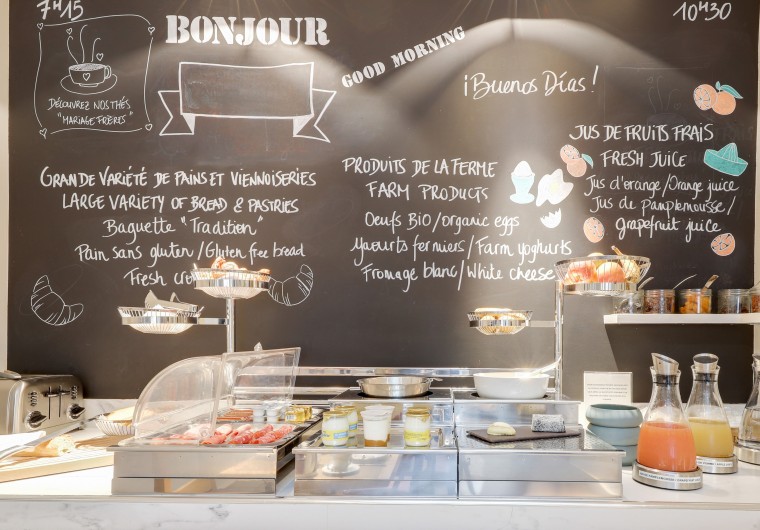 7H15
BONJOUR
GOOD MORNING
10H30
¡Buenos Días!
DÉCOUVREZ NOS THÉS
"MARIAGE FRÈRES"
GRANDE VARIÉTÉ DE PAINS ET VIENNOISERIES
LARGE VARIETY OF BREAD & PASTRIES
Baguette "Tradition"
Pain sans gluten/Gluten free bread
Fresh
PRODUITS DE LA FERME
FARM PRODUCTS
Oeufs Bio/organic eggs
Yaourts fermiers/Farm yoghurts
Fromage blanc/White cheese
JUS DE FRUITS FRAIS
FRESH JUICE
Jus d'orange/Orange juice
Jus de Pamplemousse/
grapefruit juice